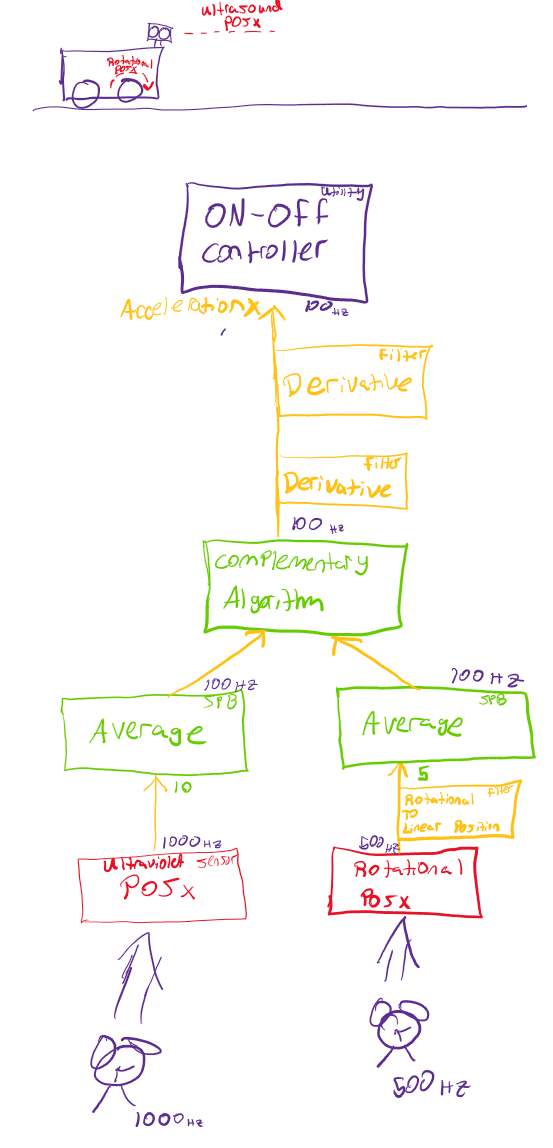 ultrasound
POSx
Rotational
POSx
utility
ON-OFF
controller
AccelerationX
100 HZ
Filter
Derivative
filter
Derivative
100 HZ
complementary
Algorithm
100 HZ
SPB
Average
10
100 HZ
SPB
Average
5
filter
Rotational
TO
Linear Position
1000 HZ
Ultraviolet sensor
POSx
500 HZ
Rotational
POSx
1000 HZ
500 HZ